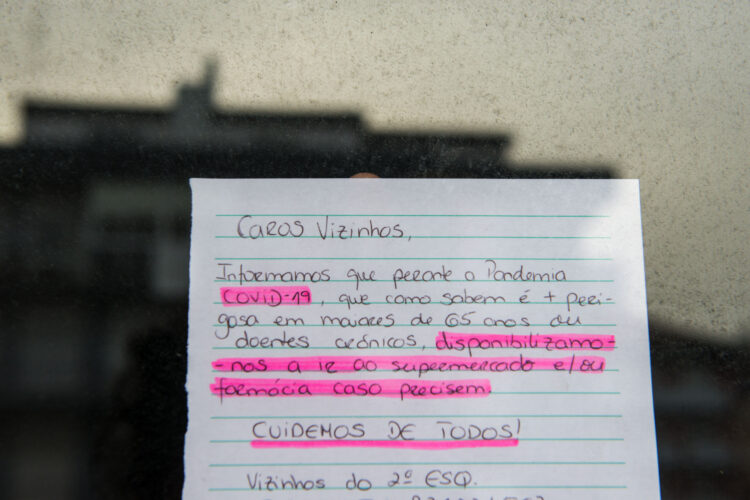 Caros Vizinhos,
Informamos que perante a Pandemia
COVID-19, que como sabem é + peri-
gosa em maiores de 65 anos ou
doentes crónicos, disponibilizamo-
-nos a ir ao supermercado e/ou
farmácia caso precisem.
CUIDEMOS DE TODOS!
Vizinhos do 2º ESQ.